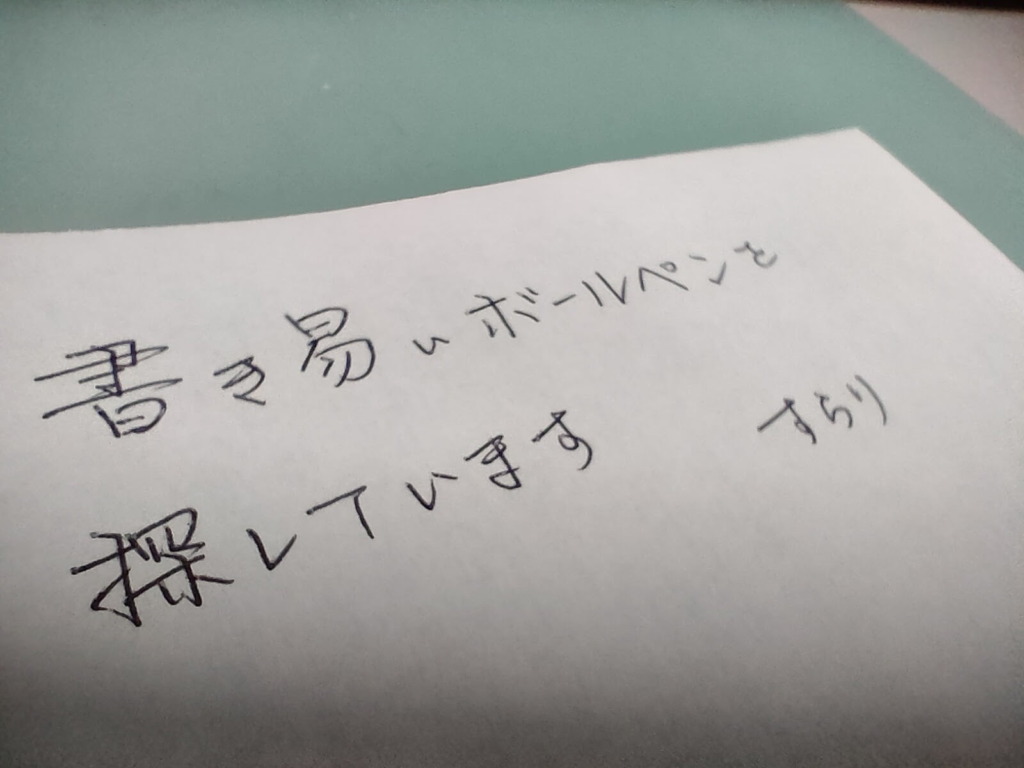 書き易いボールペンを
探しています すらり